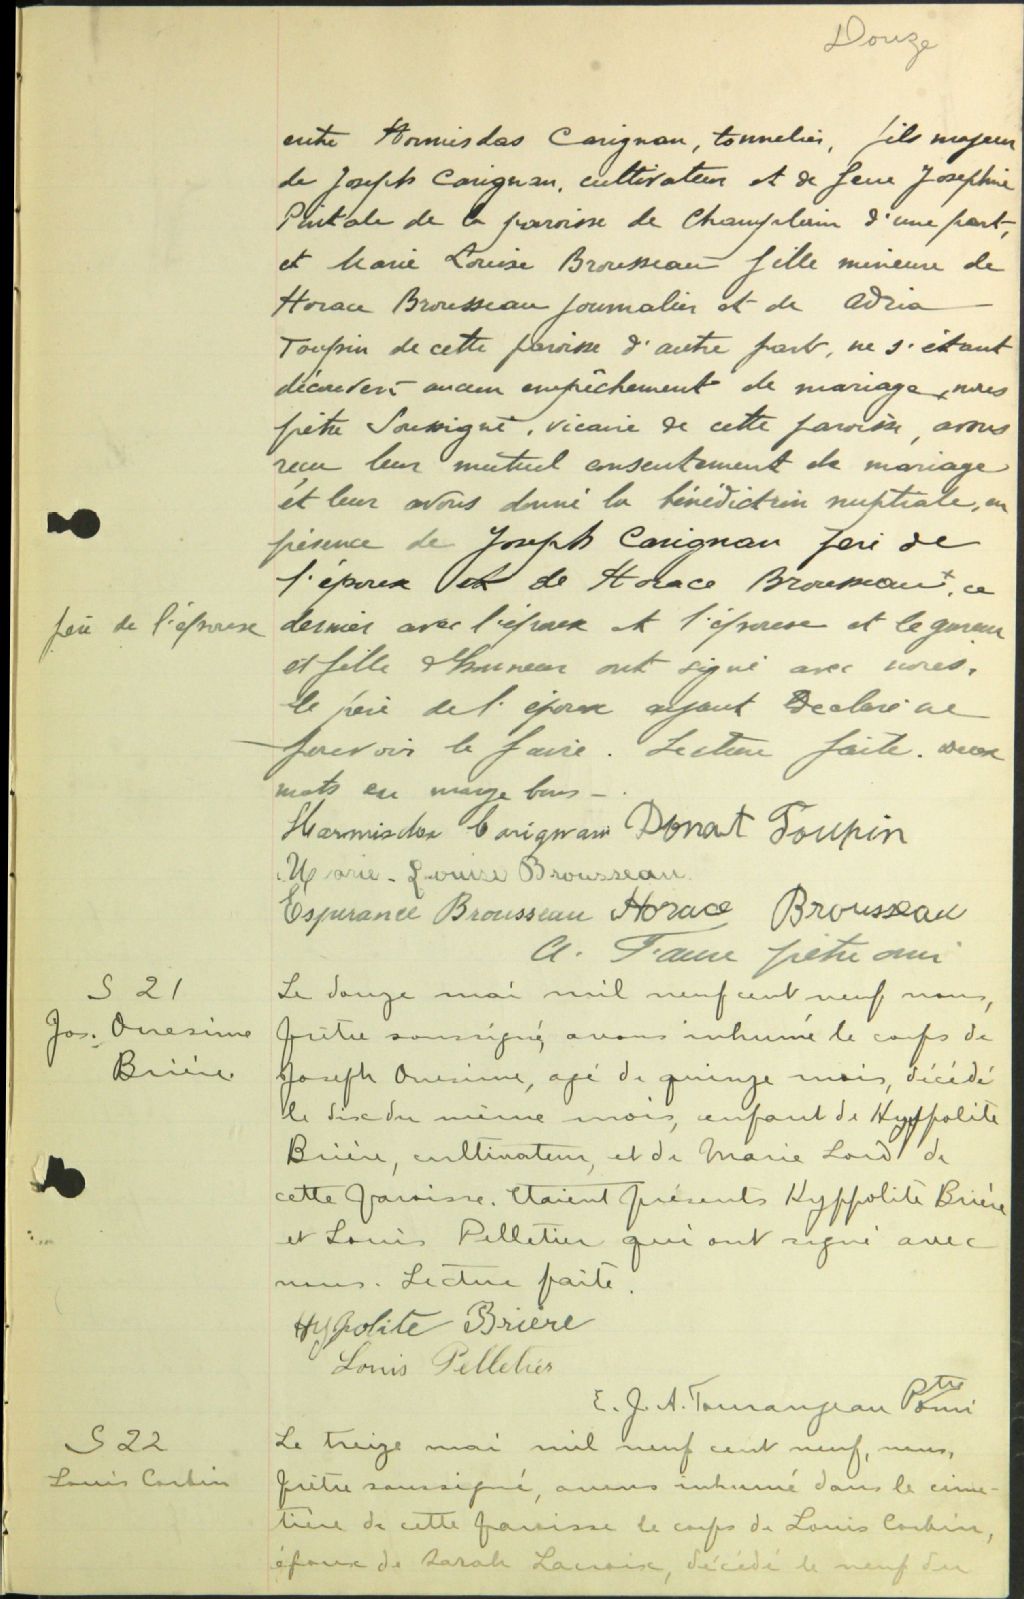 Douze
entre Hormisdas Carignan, tonnelier, fils majeur
de Joseph Carignan, cultivateur et de feue Josephine
de la paroisse de Champlain d'une part,
et Marie Louise Brousseau fille mineure de
Horace Brousseau journalier et de Adria
Toupin de cette paroisse d'autre part, ne s'étant
découvert aucun empêchement de mariage, nous
prêtre soussigné, vicaire de cette paroisse, avons
reçu leur mutuel consentement de mariage
et leur avons donné la bénédiction nuptiale, en
présence de Joseph Carignan père de
l'époux et de Horace Brousseau +, ce
père de l'épouse
dernier avec l'époux et l'épouse et le garçon
et fille d'honneur ont signé avec nous.
le père de l'époux ayant declaré ne
pouvoir le faire. Lecture faite. deux
mots en marge bons -
Hormisdas Carignan Donat Toupin
Marie-Louise Brousseau
Espérance Brousseau Horace Brousseau
prêtre omi
S 21
Jos. Onesime
Brière
Le douze mai mil neuf cent neuf nous,
prêtre soussigné, avons inhumé le corps de
Joseph Onesime, agé de quinze mois, décédé
le dix du même mois, enfant de Hyppolite
Brière, cultivateur, et de Marie Lord de
cette paroisse. Etaient présents Hyppolite Brière
et Louis Pelletier qui ont signé avec
nous. Lecture faite.
Hypolite Brière
Louis Pelletier
E. J. A. Tourangeau Ptre omi
S 22
Louis Corbin
Le treize mai mil neuf cent neuf, nous,
prêtre soussigné, avons inhumé dans le cime-
tière de cette paroisse le corps de Louis Corbin,
époux de Sarah Lacroix, décédé le neuf du